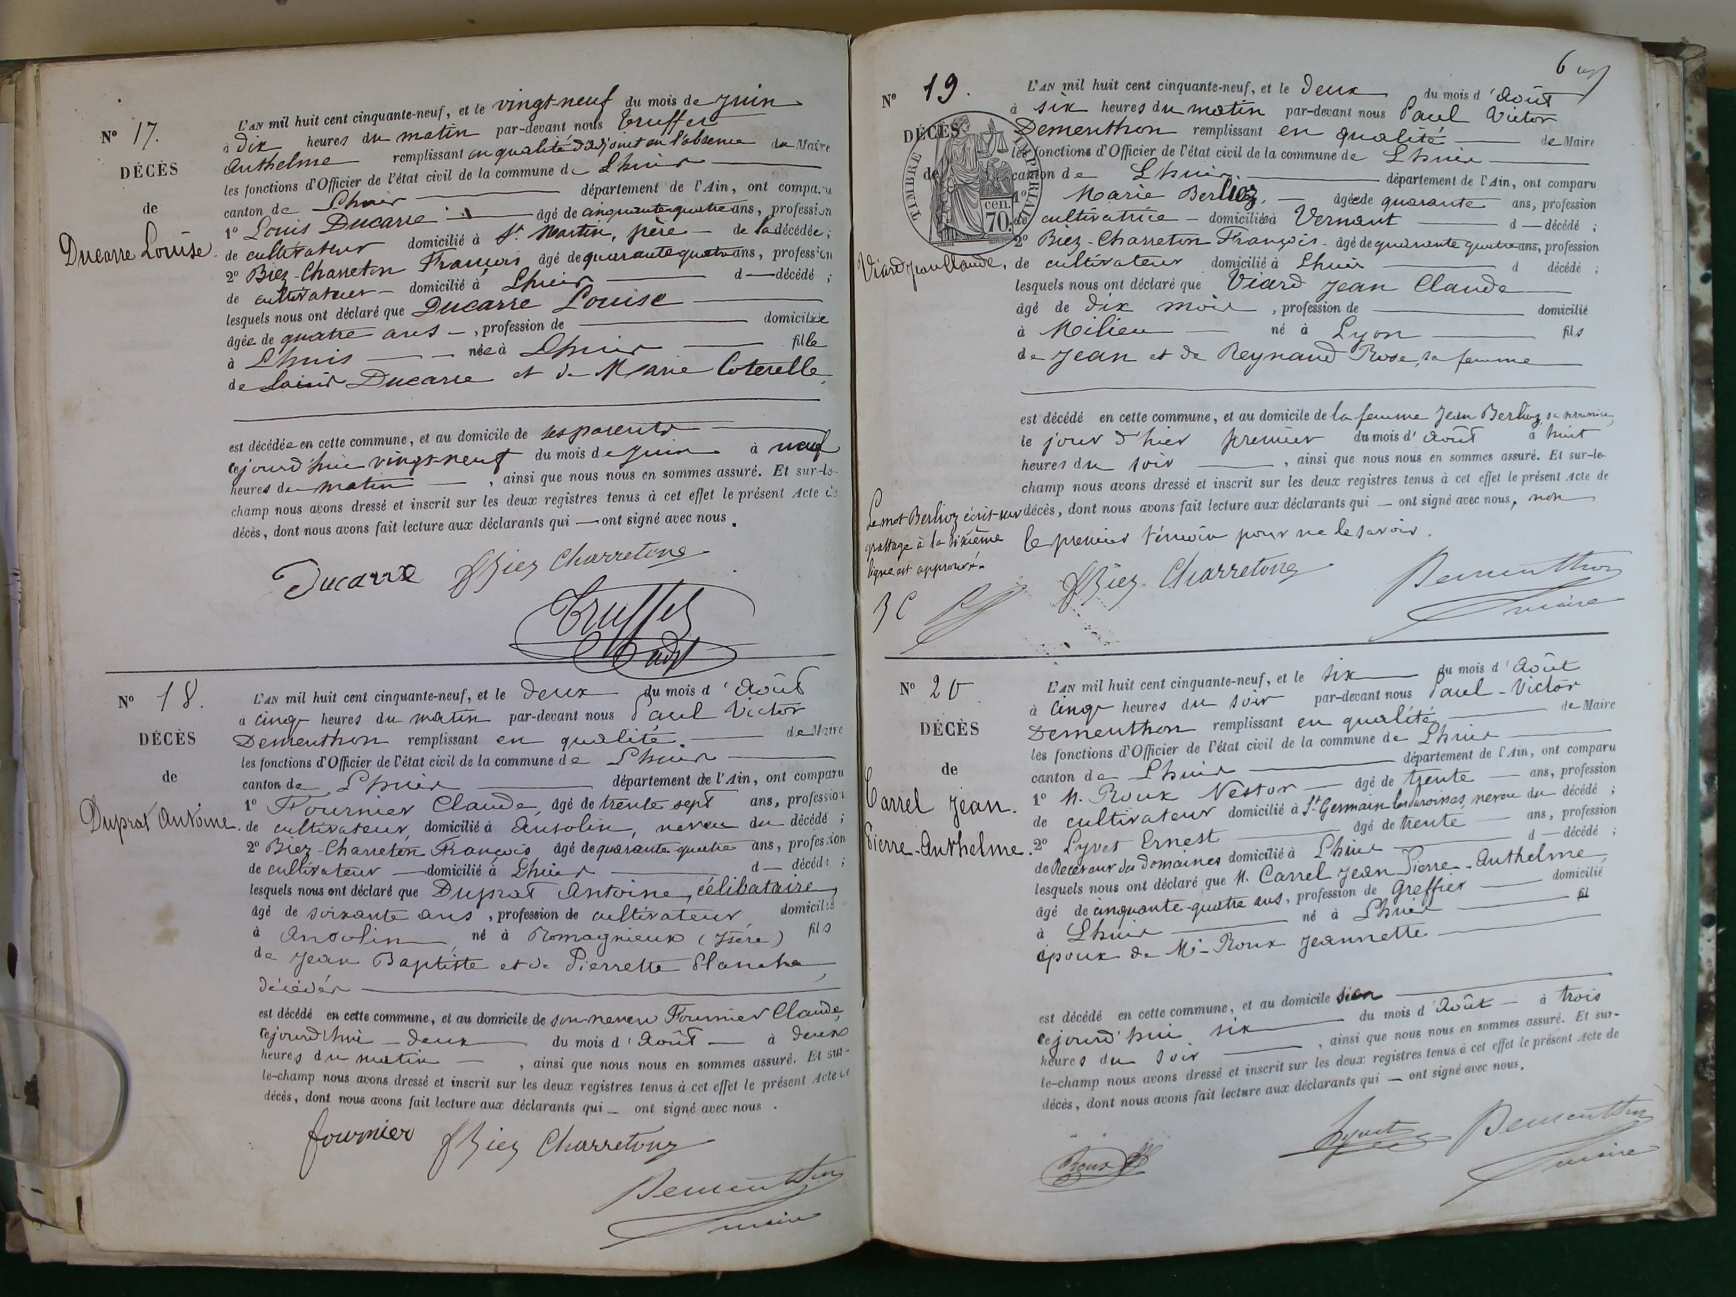 Nº 17.
DÉCÈS
de
Ducarre Louise.
L'AN mil huit cent cinquante-neuf, et le vingt-neuf du mois de Juin
à Dix heures du matin par-devant nous Truffet
Anthelme remplissant en qualité d'adjoint en l'absence de Maire
les fonctions d'Officier de l'état civil de la commune de Lhuis
canton de Lhuis département de l'Ain, ont comparu
1º Louis Ducarre âgé de cinquante quatre ans, profession
de cultivateur domicilié à St Martin, père de la décédée;
2º Biez-Charreton François âgé de quarante quatre ans, profession
de cultivateur domicilié à Lhuis d décédé;
lesquels nous ont déclaré que Ducarre Louise
âgée de quatre ans, profession de domiciliée
à Lhuis née à Lhuis fille
de Louis Ducarre et de Marie Coterelle
est décédée en cette commune, et au domicile de ses parents
cejourd'hui vingt-neuf du mois de Juin à neuf
heures du matin, ainsi que nous nous en sommes assuré. Et sur-le-
champ nous avons dressé et inscrit sur les deux registres tenus à cet effet le présent Acte de
décès, dont nous avons fait lecture aux déclarants qui ont signé avec nous.
Ducarre Biez Charreton
Truffet
adjt
Nº 18.
DÉCÈS
de
Duprat Antoine.
L'AN mil huit cent cinquante-neuf, et le deux du mois d'Août
à cinq heures du matin par-devant nous Paul Victor
Dementhon remplissant en qualité de Maire
les fonctions d'Officier de l'état civil de la commune de Lhuis
canton de Lhuis département de l'Ain, ont comparu
1º Fournier Claude, âgé de trente sept ans, profession
de cultivateur, domicilié à Ansolin, neveu du décédé;
2º Biez-Charreton François âgé de quarante quatre ans, profession
de cultivateur domicilié à Lhuis d décédé;
lesquels nous ont déclaré que Duprat Antoine, célibataire,
âgé de soixante ans, profession de cultivateur domicilié
à Ansolin, né à Romagnieux (Isère) fils
de Jean Baptiste et de Pierrette Blanche
décédés
est décédé en cette commune, et au domicile de son neveu Fournier Claude,
cejourd'hui deux du mois d'Août à deux
heures du matin, ainsi que nous nous en sommes assuré. Et sur-
le-champ nous avons dressé et inscrit sur les deux registres tenus à cet effet le présent Acte de
décès, dont nous avons fait lecture aux déclarants qui ont signé avec nous.
fournier Biez Charreton
Dementhon
maire
6
Nº 19.
DÉCÈS
de
Viard Jean Claude,
TIMBRE IMPÉRIAL
cen.
70.
L'AN mil huit cent cinquante-neuf, et le Deux du mois d'Août
à six heures du matin par-devant nous Paul Victor
Dementhon remplissant en qualité de Maire
les fonctions d'Officier de l'état civil de la commune de Lhuis
canton de Lhuis département de l'Ain, ont comparu
1º Marie Berlioz, âgée de quarante ans, profession
de cultivatrice domiciliée à Vernant d décédé;
2º Biez-Charreton François âgé de quarante quatre ans, profession
de cultivateur domicilié à Lhuis d décédé;
lesquels nous ont déclaré que Viard Jean Claude
âgé de dix mois, profession de domicilié
à Milieu né à Lyon fils
de Jean et de Reynaud Rose, sa femme
est décédé en cette commune, et au domicile de la femme Jean Berlioz sa nourrice,
le jour d'hier premier du mois d'Août à huit
heures du soir, ainsi que nous nous en sommes assuré. Et sur-le-
champ nous avons dressé et inscrit sur les deux registres tenus à cet effet le présent Acte de
décès, dont nous avons fait lecture aux déclarants qui ont signé avec nous, non
le premier témoin pour ne le savoir.
Le mot Berlioz écrit sur
grattage à la sixième
ligne est approuvé.
BC
Biez Charreton Dementhon
maire
Nº 20
DÉCÈS
de
Carrel Jean-
Pierre-Anthelme.
L'AN mil huit cent cinquante-neuf, et le six du mois d'Août
à cinq heures du soir par-devant nous Paul-Victor
Dementhon remplissant en qualité de Maire
les fonctions d'Officier de l'état civil de la commune de Lhuis
canton de Lhuis département de l'Ain, ont comparu
1º M. Roux Nestor âgé de trente ans, profession
de cultivateur domicilié à St Germain les paroisses, neveu du décédé;
2º Lyvet Ernest âgé de trente ans, profession
de Receveur des Domaines domicilié à Lhuis d décédé;
lesquels nous ont déclaré que M. Carrel Jean Pierre-Anthelme
âgé de cinquante-quatre ans, profession de Greffier domicilié
à Lhuis né à Lhuis fil
époux de Me Roux Jeannette
est décédé en cette commune, et au domicile sien
cejourd'hui six du mois d'Août à trois
heures du soir, ainsi que nous nous en sommes assuré. Et sur-
le-champ nous avons dressé et inscrit sur les deux registres tenus à cet effet le présent Acte de
décès, dont nous avons fait lecture aux déclarants qui ont signé avec nous.
Roux Lyvet Dementhon
maire